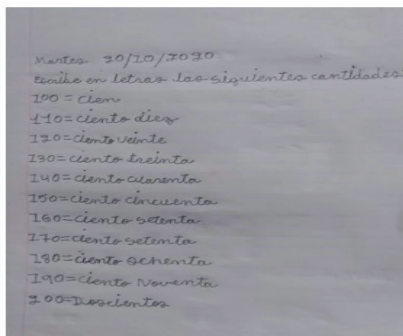 Martes 20/10/2020
Escribe en letras las siguientes cantidades:
100 = cien
110 = ciento diez
120 = ciento veinte
130 = ciento treinta
140 = ciento cuarenta
150 = ciento cincuenta
160 = ciento setenta
170 = ciento setenta
180 = ciento ochenta
190 = ciento Noventa
200 = Doscientos